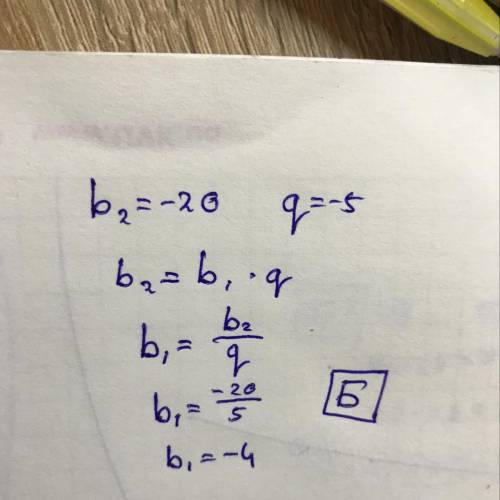 b₂ = -20 q = -5
b₂ = b₁ · q
b₁ = b₂/q
b₁ = -20/5
Б
b₁ = -4